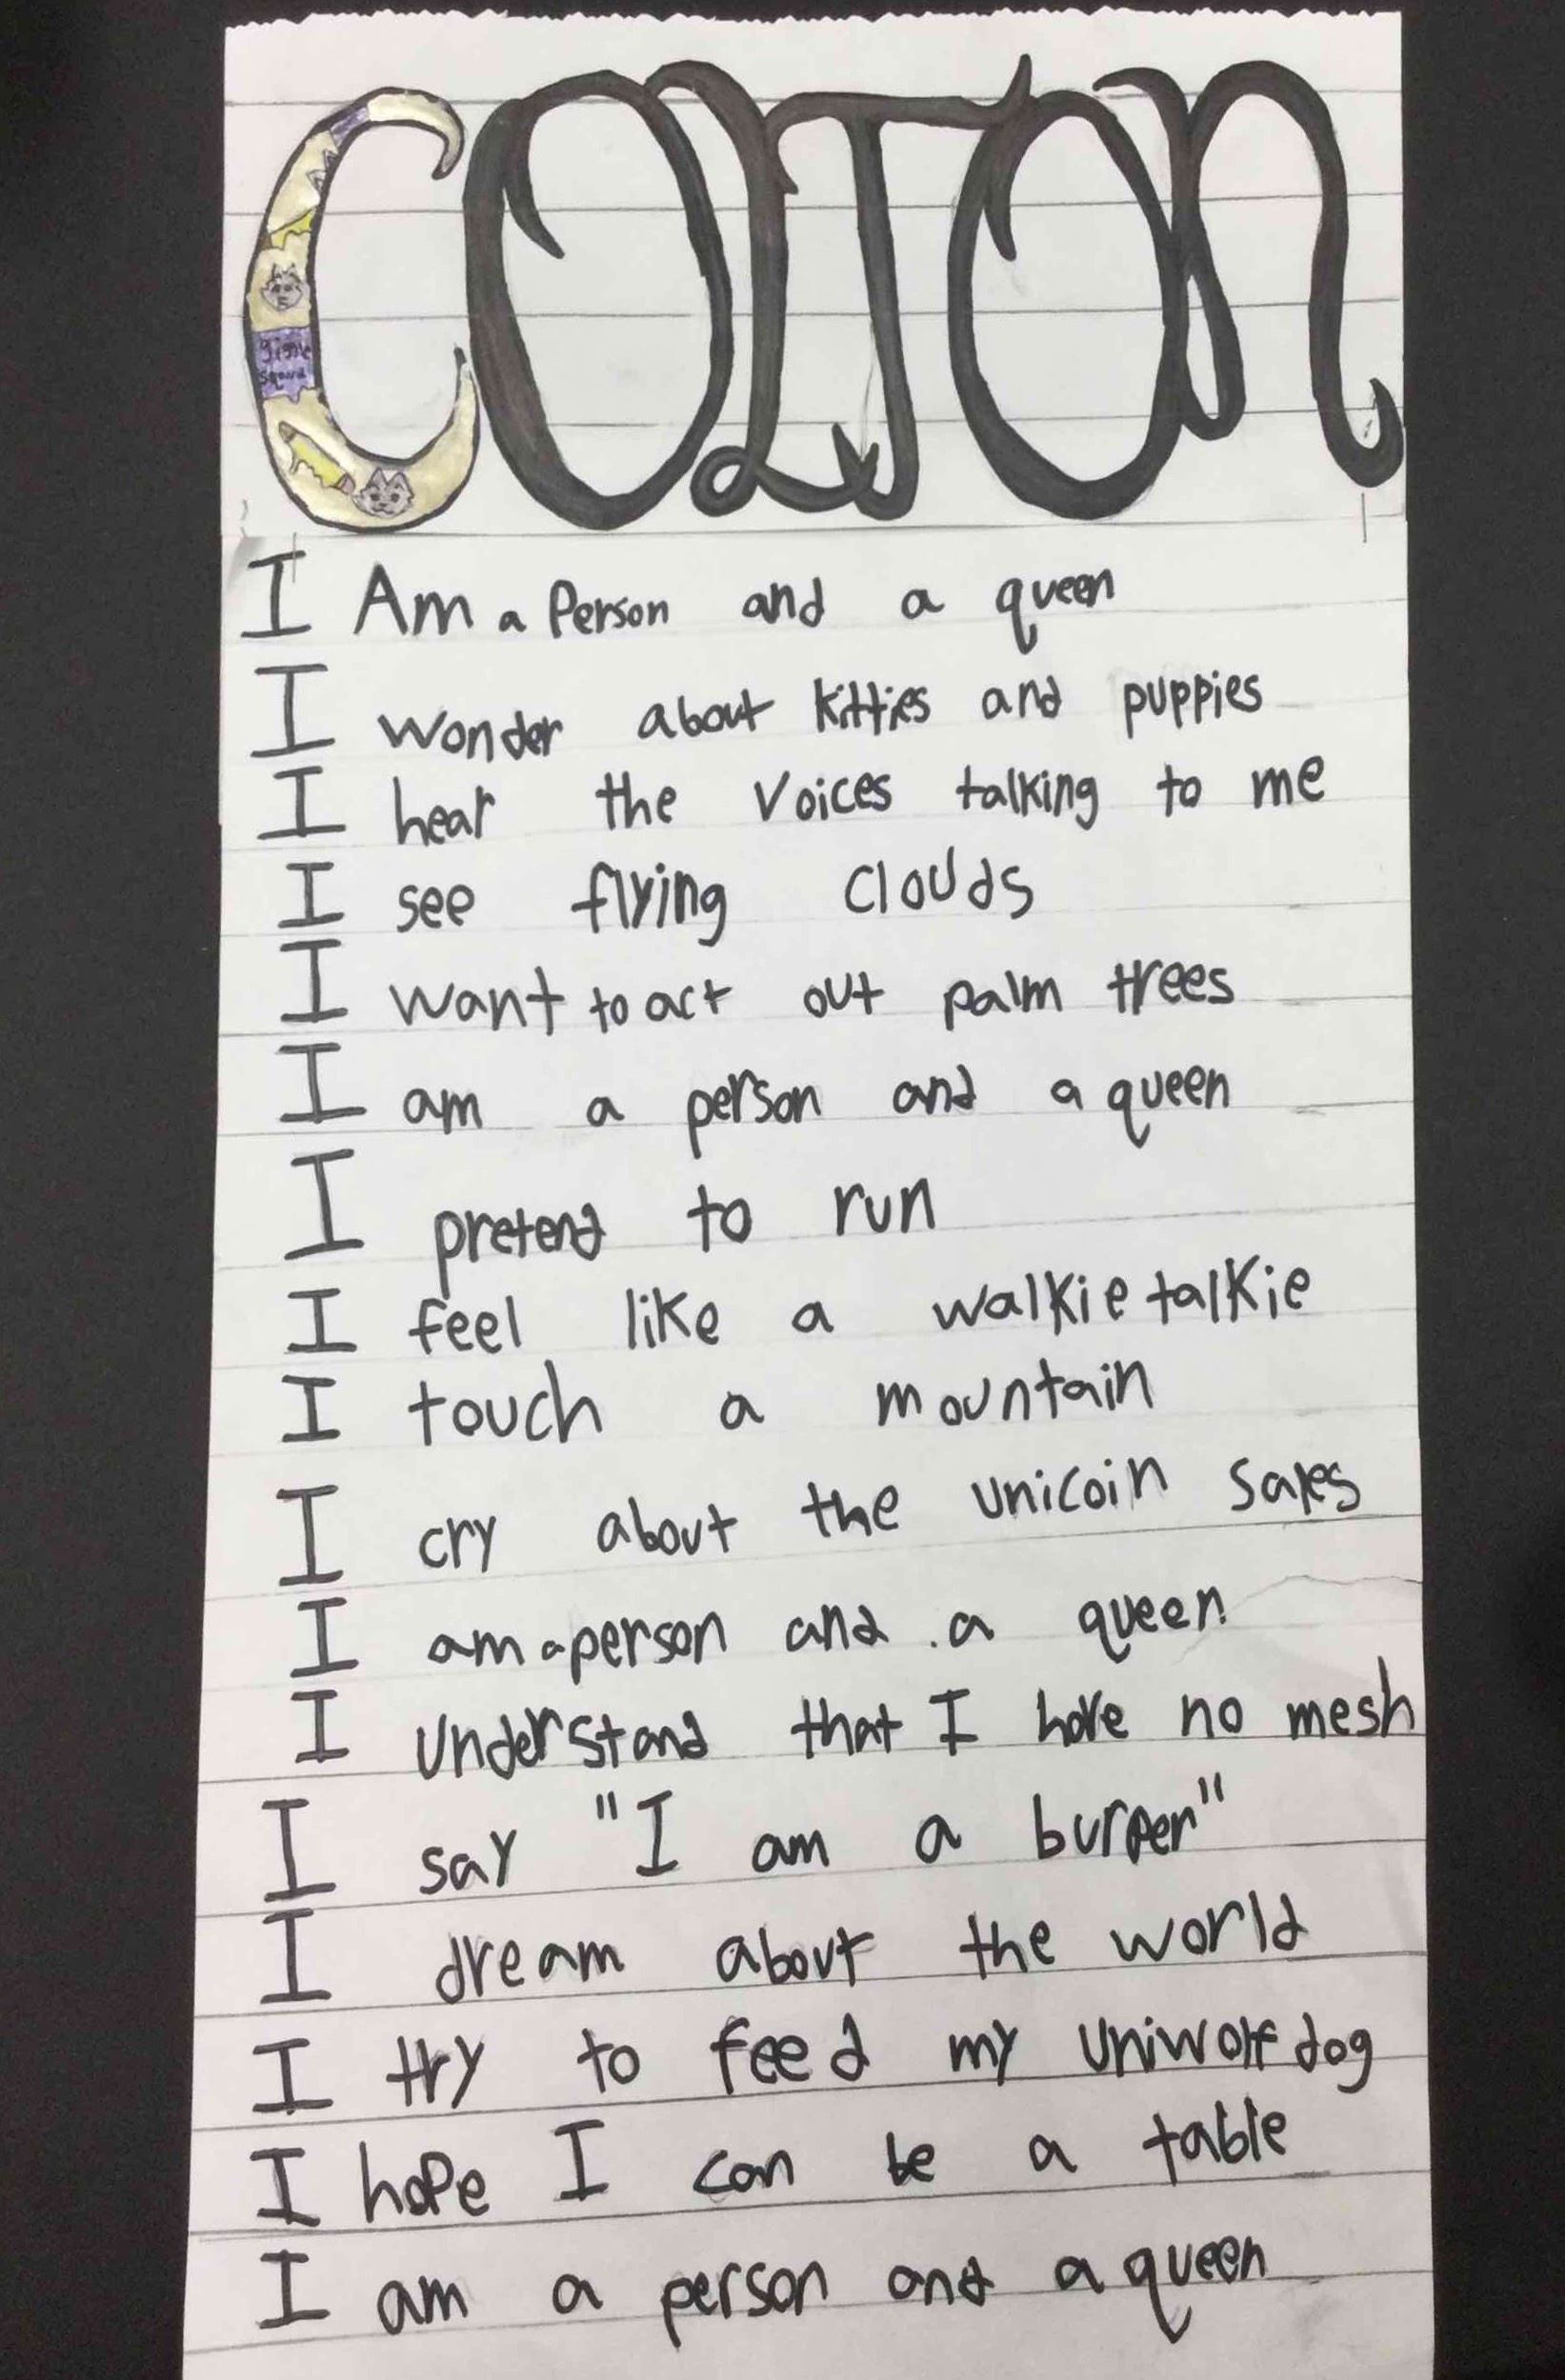 COLTON
giggle
squad
I Am a Person and a queen
I wonder about kitties and puppies
I hear the voices talking to me
I see flying clouds
I want to act out palm trees
I am a person and a queen
I pretend to run
I feel like a walkie talkie
I touch a mountain
I cry about the unicoin sales
I am a person and a queen
I understand that I have no mesh
I say "I am a burper"
I dream about the world
I try to feed my uniwolf dog
I hope I can be a table
I am a person and a queen